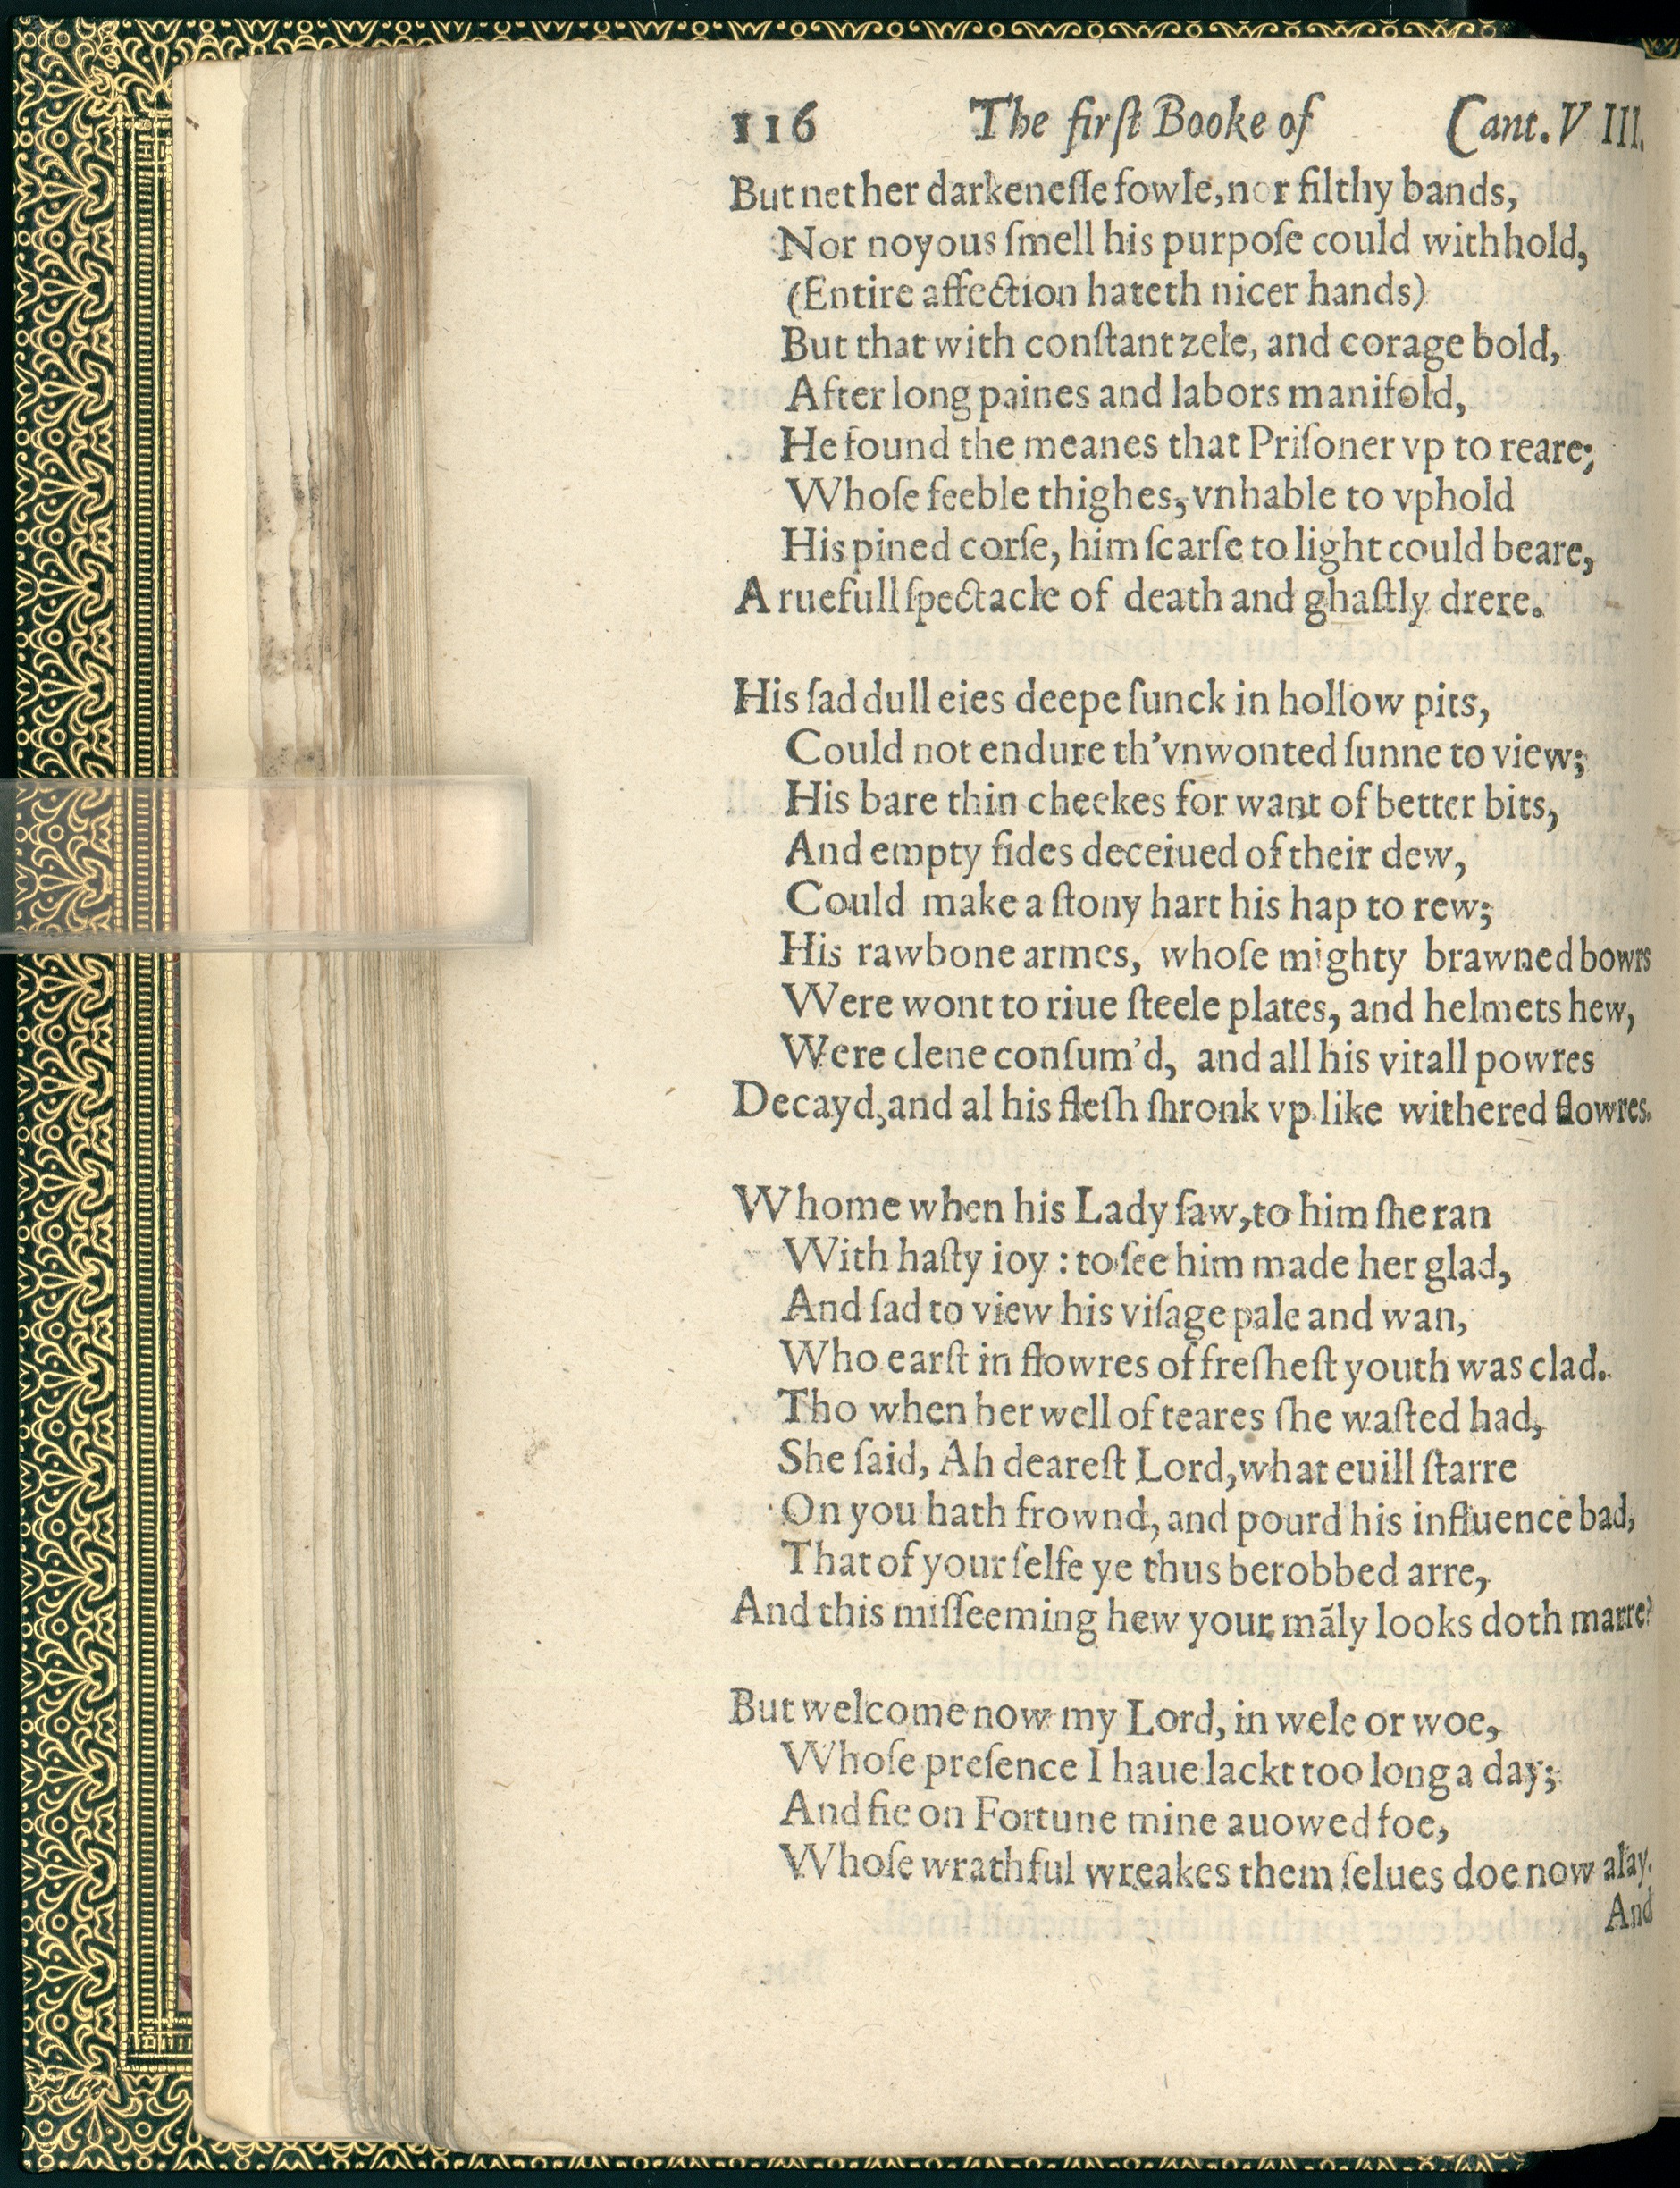 116 The firſt Booke of Cant. VIII.
But nether darkeneſſe fowle, nor filthy bands,
Nor noyous ſmell his purpoſe could withhold,
(Entire affection hateth nicer hands)
But that with conſtant zele, and corage bold,
After long paines and labors manifold,
He found the meanes that Priſoner vp to reare;
Whoſe feeble thighes, vnhable to vphold
His pined corſe, him ſcarſe to light could beare,
A ruefull ſpectacle of death and ghaſtly drere.
His ſad dull eies deepe ſunck in hollow pits,
Could not endure th'vnwonted ſunne to view;
His bare thin cheekes for want of better bits,
And empty ſides deceiued of their dew,
Could make a ſtony hart his hap to rew;
His rawbone armes, whoſe mighty brawned bowrs
Were wont to riue ſteele plates, and helmets hew,
Were clene conſum'd, and all his vitall powres
Decayd, and al his fleſh ſhronk vp like withered flowres.
Whome when his Lady ſaw, to him ſhe ran
With haſty ioy: to ſee him made her glad,
And ſad to view his viſage pale and wan,
Who earſt in flowres of freſheſt youth was clad.
Tho when her well of teares ſhe waſted had,
She ſaid, Ah deareſt Lord, what euill ſtarre
On you hath frownd, and pourd his influence bad,
That of your ſelfe ye thus berobbed arre,
And this miſſeeming hew your māly looks doth marre?
But welcome now my Lord, in wele or woe,
Whoſe preſence I haue lackt too long a day;
And fie on Fortune mine auowed foe,
Whoſe wrathful wreakes them ſelues doe now alay.
And